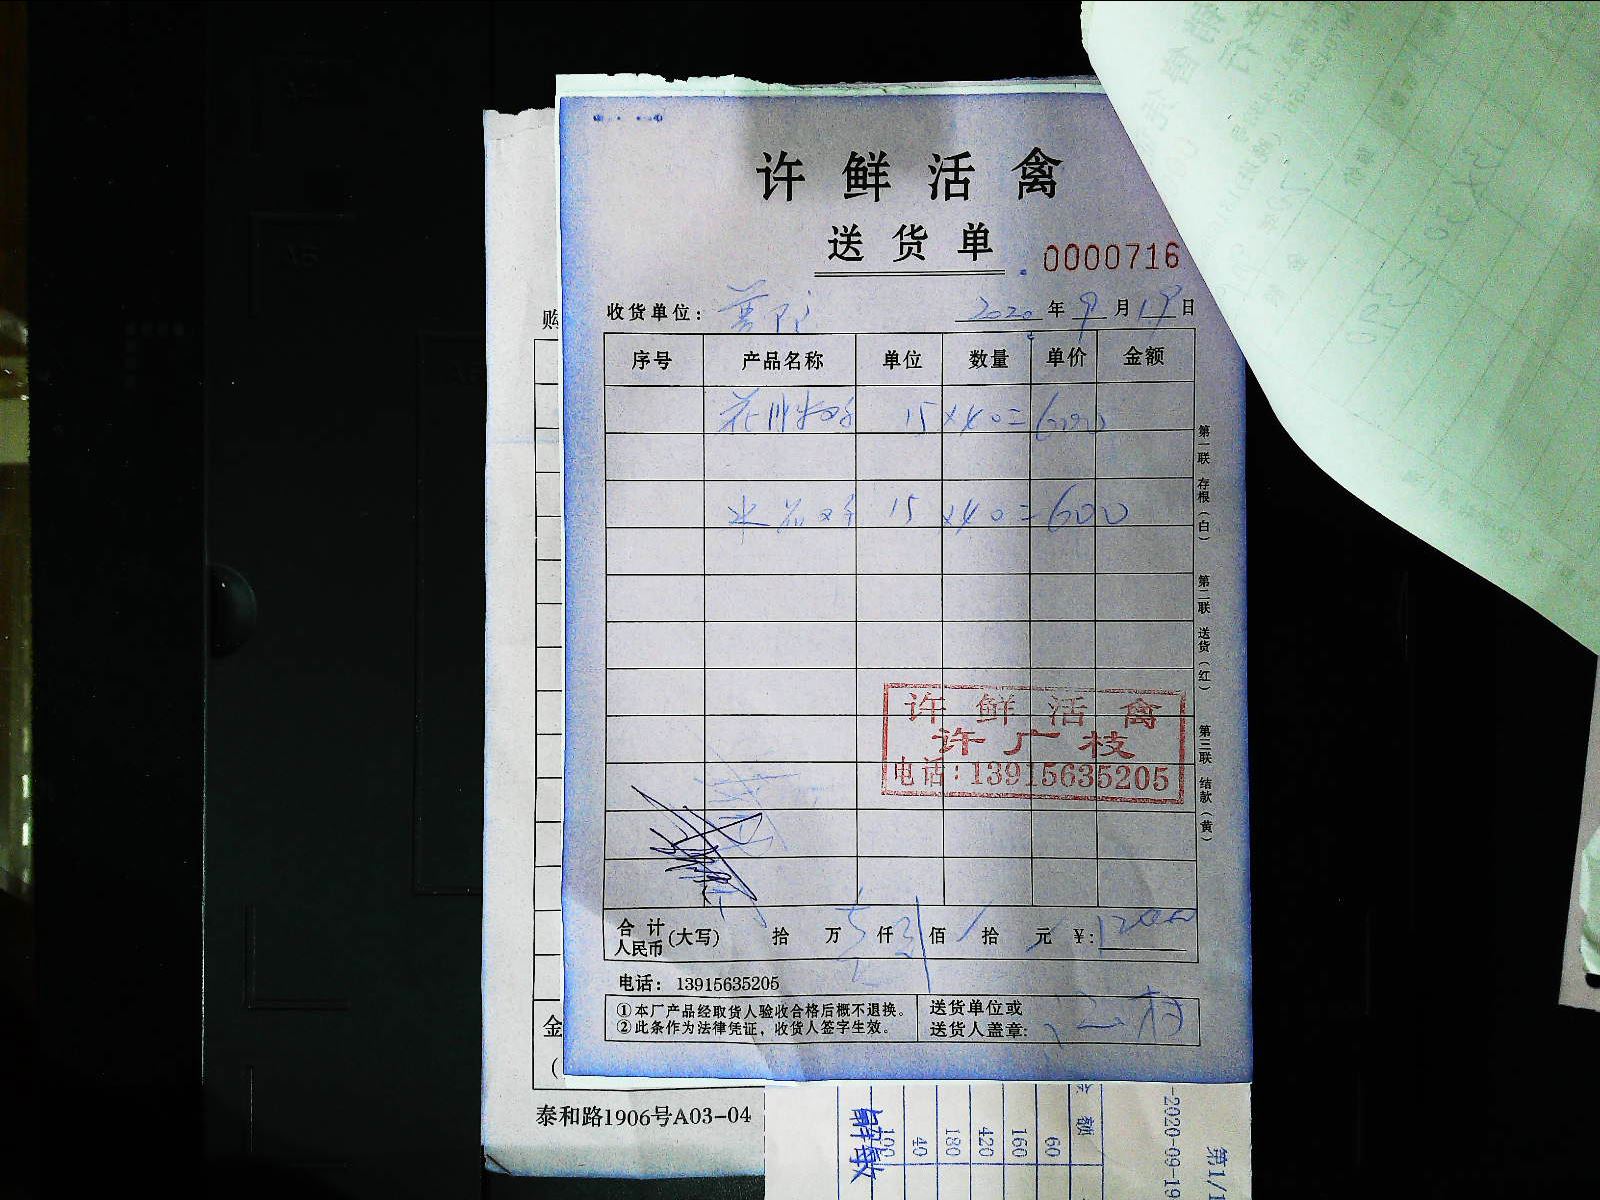 许鲜活禽
送货单
0000716
收货单位:
2020年9月19日
序号 产品名称 单位 数量 单价 金额
15×40=600
15×40=600
第一联 存根(白)
第二联 送货(红)
第三联 结款(黄)
许鲜活禽
许广枝
电话:13915635205
合计人民币(大写) 拾 万 仟 佰 拾 元 ¥:1200
电话: 13915635205
①本厂产品经取货人验收合格后概不退换。
②此条作为法律凭证,收货人签字生效。
送货单位或
送货人盖章:
购
金
(
泰和路1906号A03-04
额
60
160
420
180
40
100
-2020-09-19
第1/1